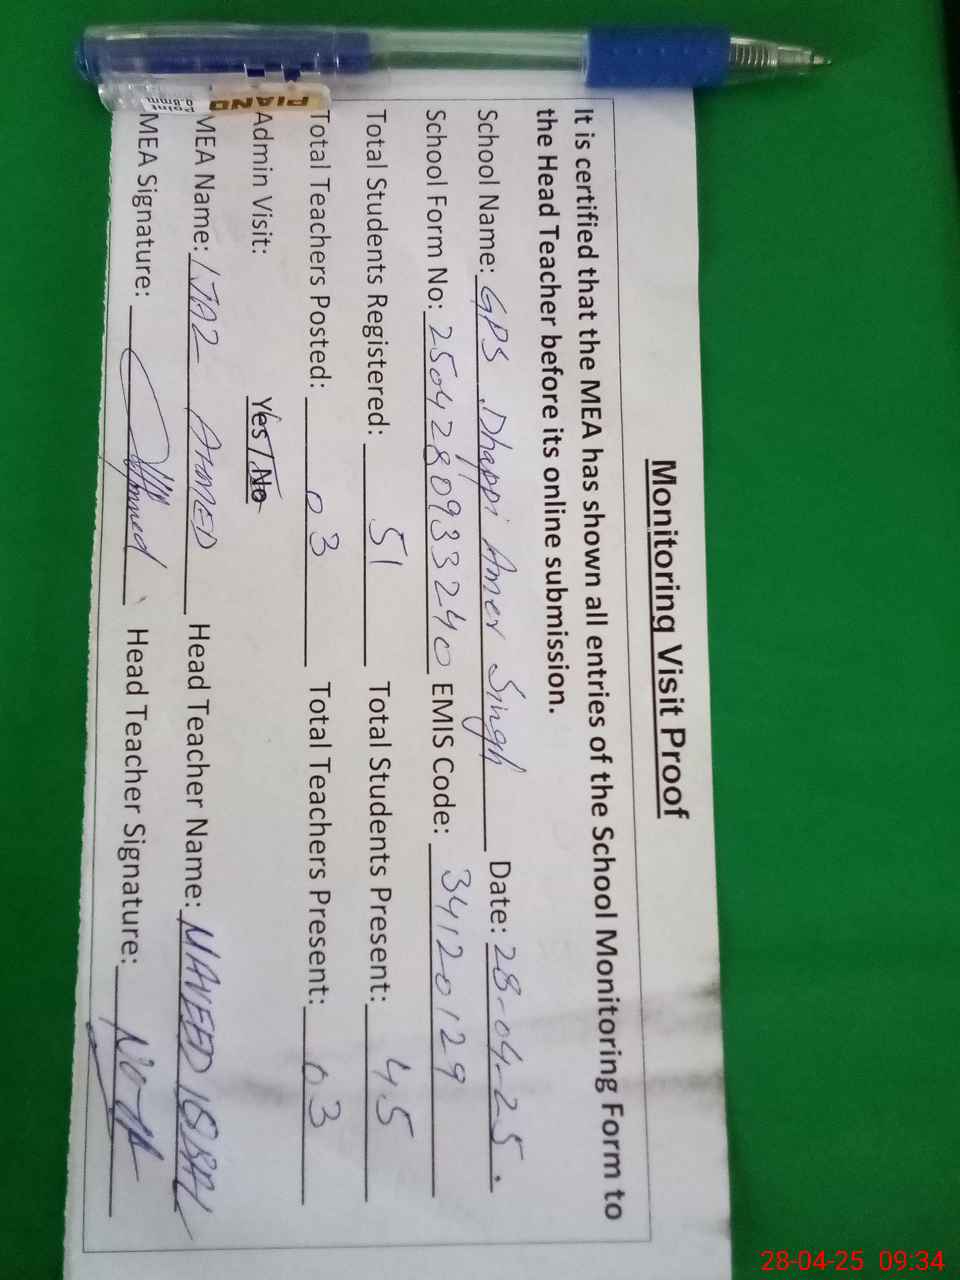 Monitoring Visit Proof
It is certified that the MEA has shown all entries of the School Monitoring Form to
the Head Teacher before its online submission.
School Name: GPS Dhappi Amer Singh Date: 28-04-25.
School Form No: 2504280933240 EMIS Code: 34120129
Total Students Registered: 51 Total Students Present: 45
Total Teachers Posted: 03 Total Teachers Present: 03
Admin Visit: Yes / No
MEA Name: IJAZ AHMED Head Teacher Name: NAVEED IQBAL
MEA Signature: Ahmed Head Teacher Signature:
PIANO
Point
0.8mm
28-04-25 09:34